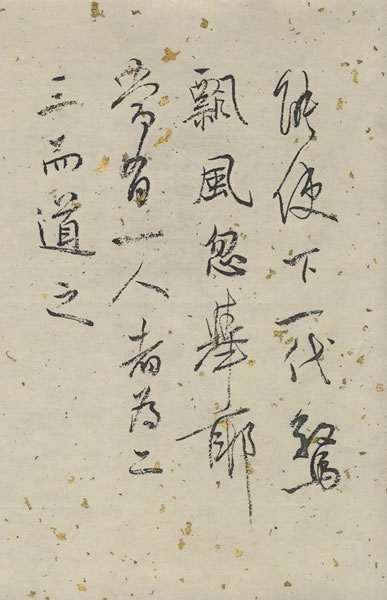 能使下一代驚
飄風忽舉耶
常有一人者為二
三而道之